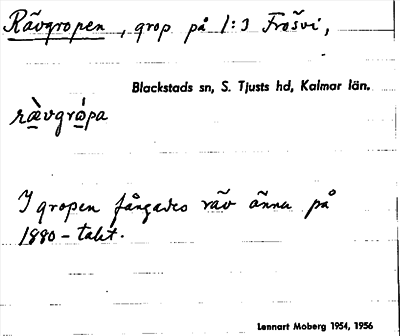 Rävgropen, grop på 1:3 Frösvi,
Blackstads sn, S. Tjusts hd, Kalmar län.
rævgrɷpa
I gropen fångades räv ännu på
1880-talet.
Lennart Moberg 1954, 1956